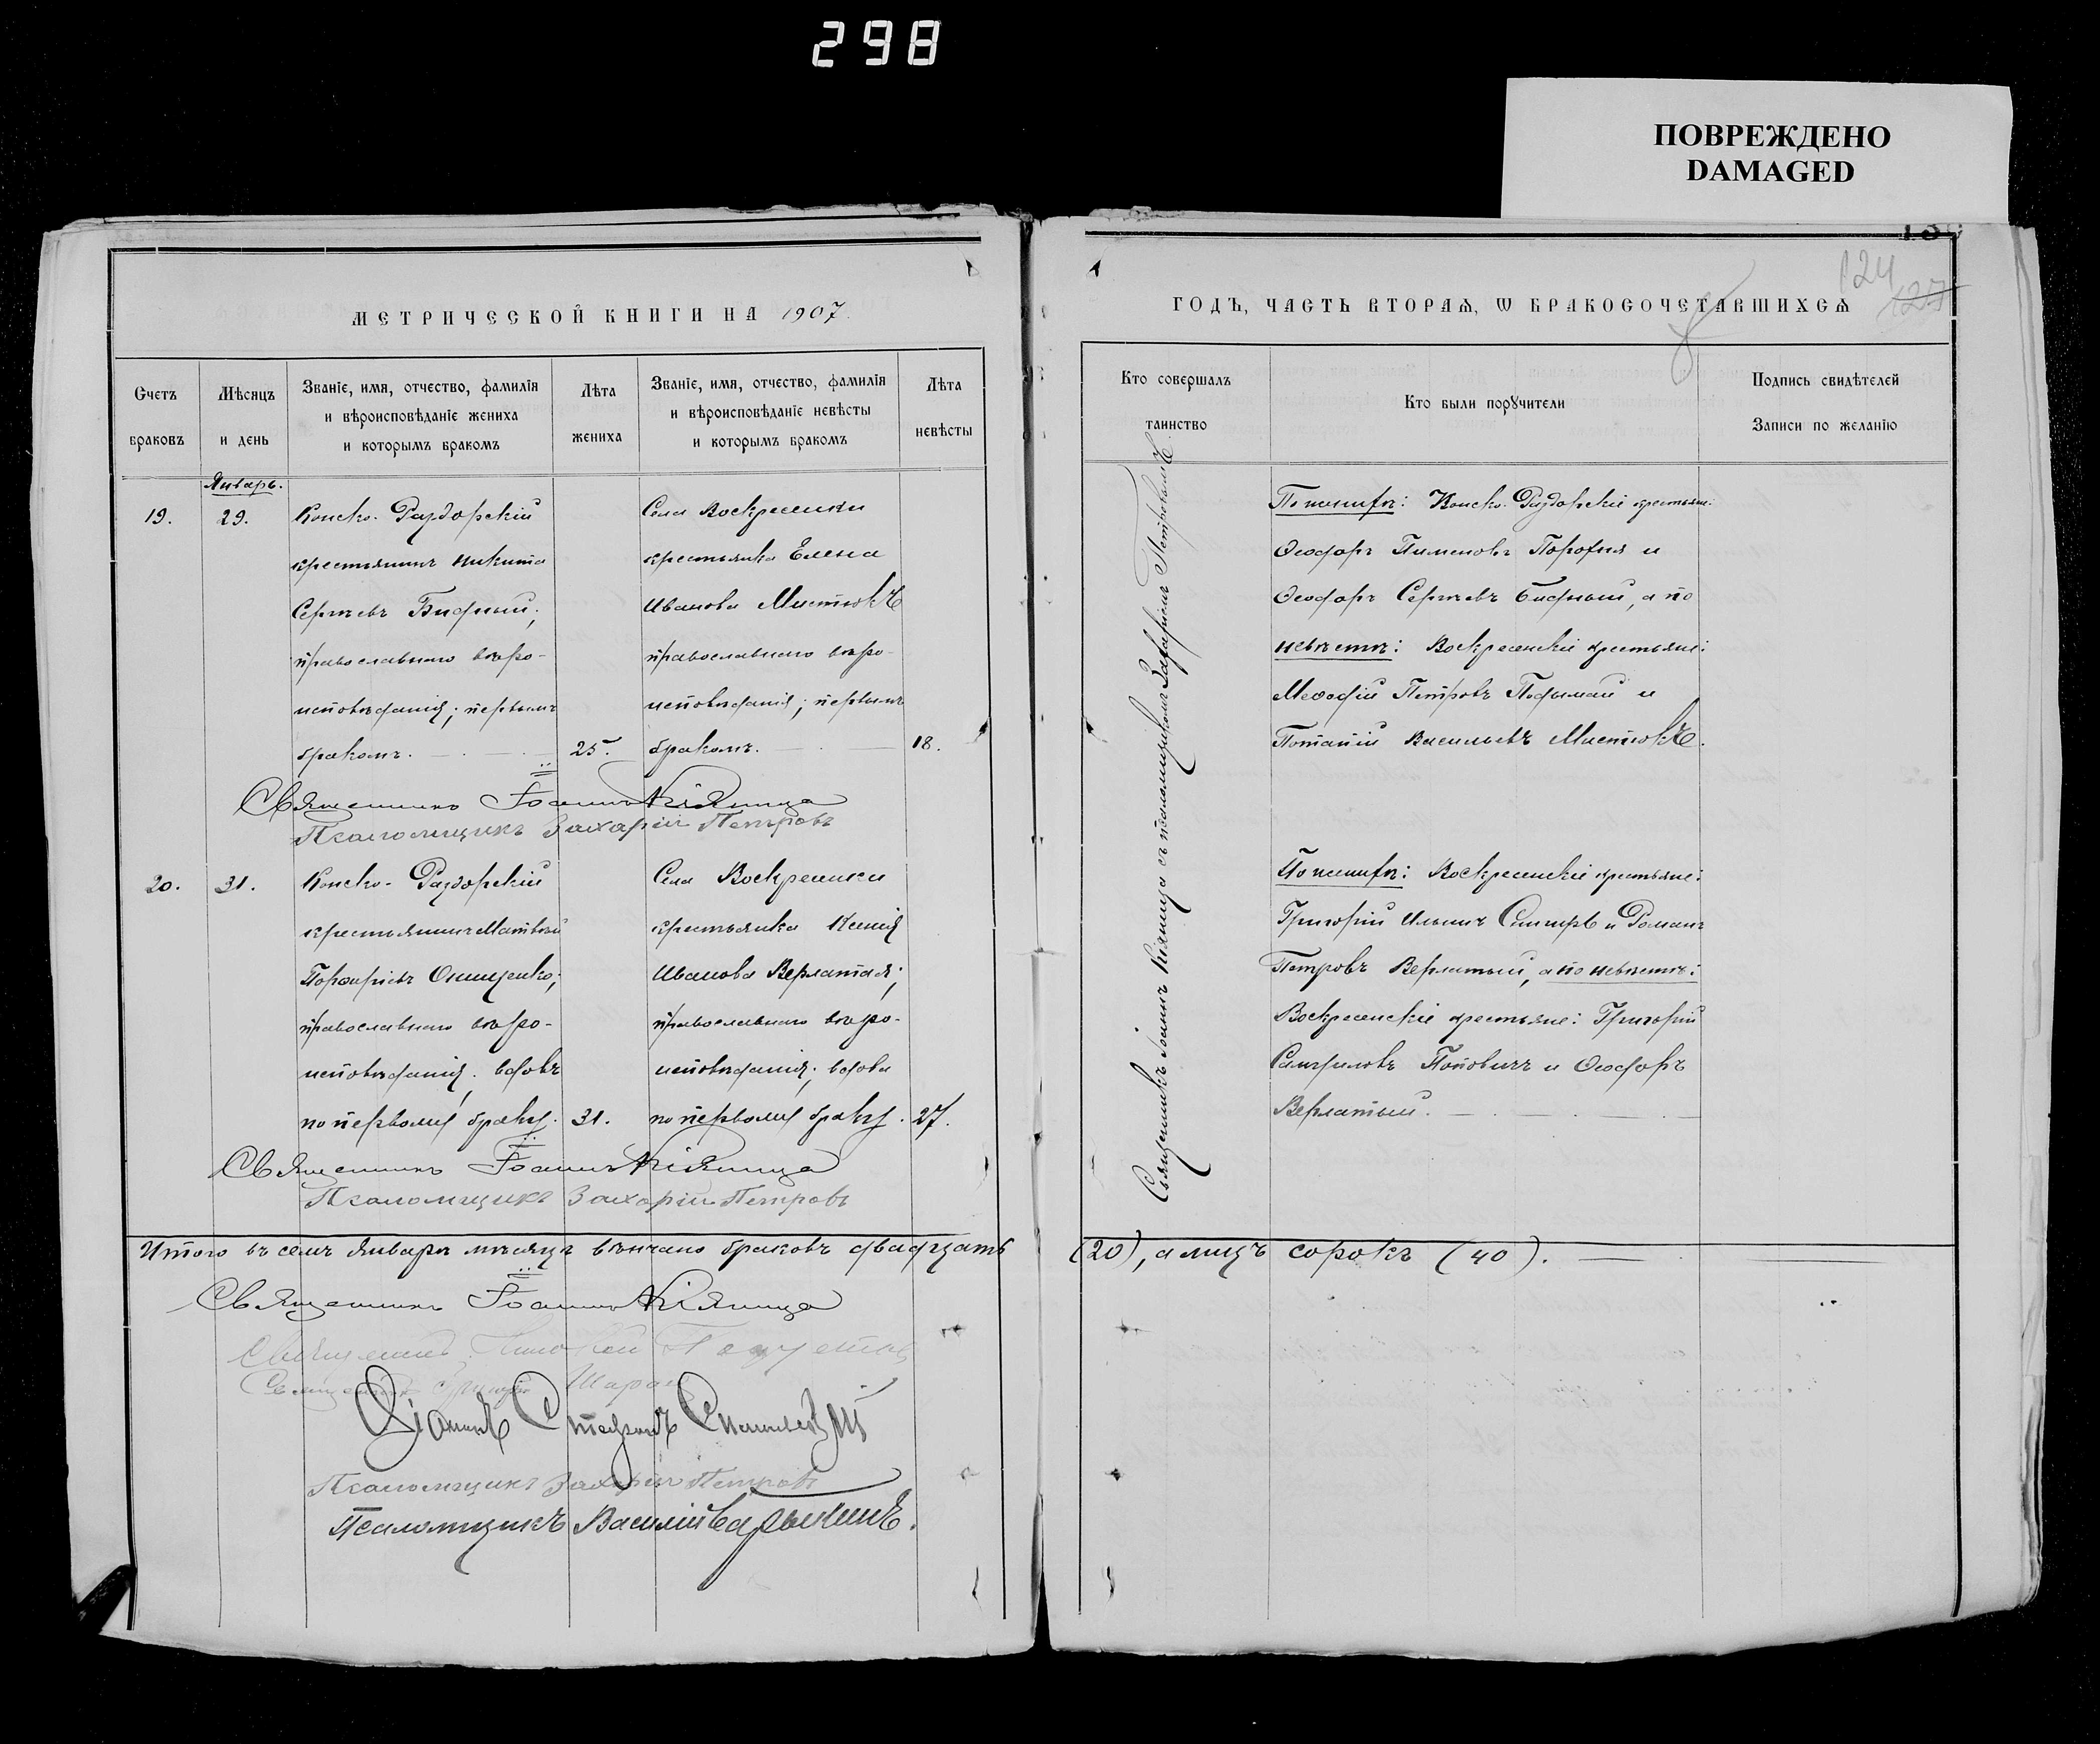 298
ПОВРЕЖДЕНО
DAMAGED
МЕТРИЧЕСКОЙ КНИГИ НА 1907
Счетъ
браковъ
Мѣсяцъ
и день
Званіе, имя, отчество, фамилія
и вѣроисповѣданіе жениха
и которымъ бракомъ
Лѣта
жениха
Званіе, имя, отчество, фамилія
и вѣроисповѣданіе невѣсты
и которымъ бракомъ
Лѣта
невѣсты
Январь.
19.
29.
Конско-Раздорскій
крестьянинъ Никита
Сергѣевъ Бидный;
православнаго вѣро-
исповѣданія; первымъ
бракомъ.
25.
Села Воскресенки
крестьянка Елена
Иванова Мистюкъ
православнаго вѣро-
исповѣданія; первымъ
бракомъ.
18.
Священникъ Іоаннъ Кіяница
Псаломщикъ Захарій Петровъ
20.
31.
Конско-Раздорскій
крестьянинъ Матвѣй
Порфирьевъ Онищенко;
православнаго вѣро-
исповѣданія; вдовъ
по первому браку.
31.
Села Воскресенки
крестьянка Ксенія
Иванова Верлатая;
православнаго вѣро-
исповѣданія; вдова
по первому браку.
27.
Священникъ Іоаннъ Кіяница
Псаломщикъ Захарій Петровъ
Итого въ семъ Январѣ мѣсяцѣ вѣнчано браковъ двадцать
Священникъ Іоаннъ Кіяница
Священникъ
Священникъ Григорій
Діаконъ Стефанъ
Псаломщикъ Захарій Петровъ
Псаломщикъ Василій
ГОДЪ, ЧАСТЬ ВТОРАЯ, Ѡ БРАКОСОЧЕТАВШИХСЯ
124
127
Кто совершалъ
таинство
Кто были порꙋчители
Подпись свидѣтелей
Записи по желанію
Священникъ Іоаннъ Кіяница съ псаломщикомъ Захаріемъ Петровымъ
По женихѣ: Конско-Раздорскіе крестьяне:
Ѳеодоръ Пименовъ Порохня и
Ѳеодоръ Сергѣевъ Бидный, а по
невѣстѣ: Воскресенскіе крестьяне:
Меѳодій Петровъ Подымай и
Потапій Васильевъ Мистюкъ.
По женихѣ: Воскресенскіе крестьяне:
Григорій Ильинъ Снигирь и Романъ
Петровъ Верлатый, а по невѣстѣ:
Воскресенскіе крестьяне: Григорій
Самуиловъ Поповичъ и Ѳеодоръ
Верлатый.
(20), а лицъ сорокъ (40).